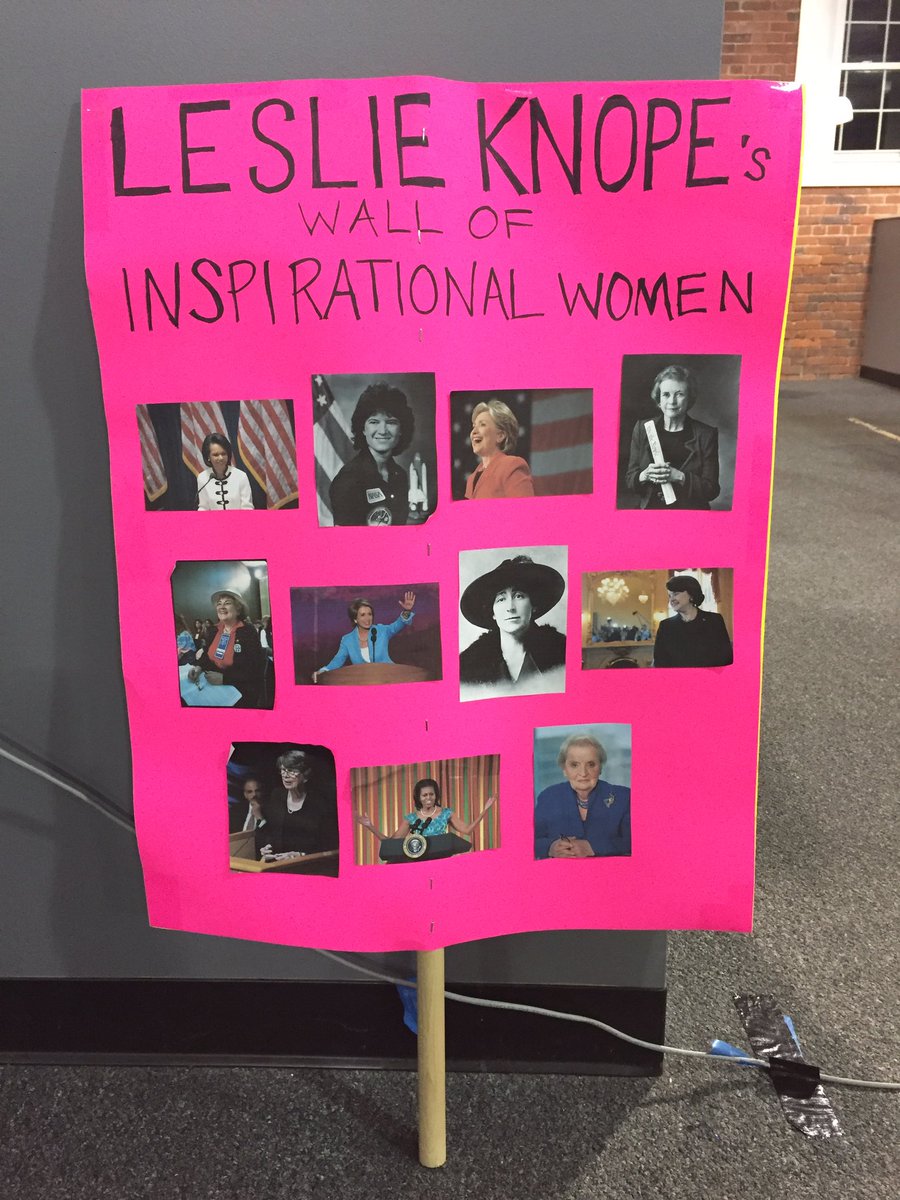 LESLIE KNOPE's
WALL OF
INSPIRATIONAL WOMEN
NASA